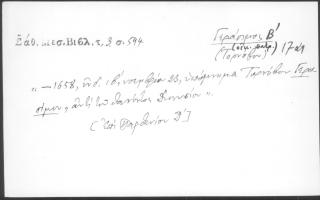 Σάθ. Μεσ. Βιβλ. τ. 3 σ. 594
Γεράσιμος Β΄
(οἰκ. πατρ.)
(Τορνόβου) 17 αἰ
„—1658, ἰνδ. ιβ, νοεμβρίου 23, ὑπόμνημα Τορνόβου Γερα
σίμου, ἀντὶ τοῦ θανόντος Διονυσίου“.
[ἐπὶ Παρθενίου Δ΄]